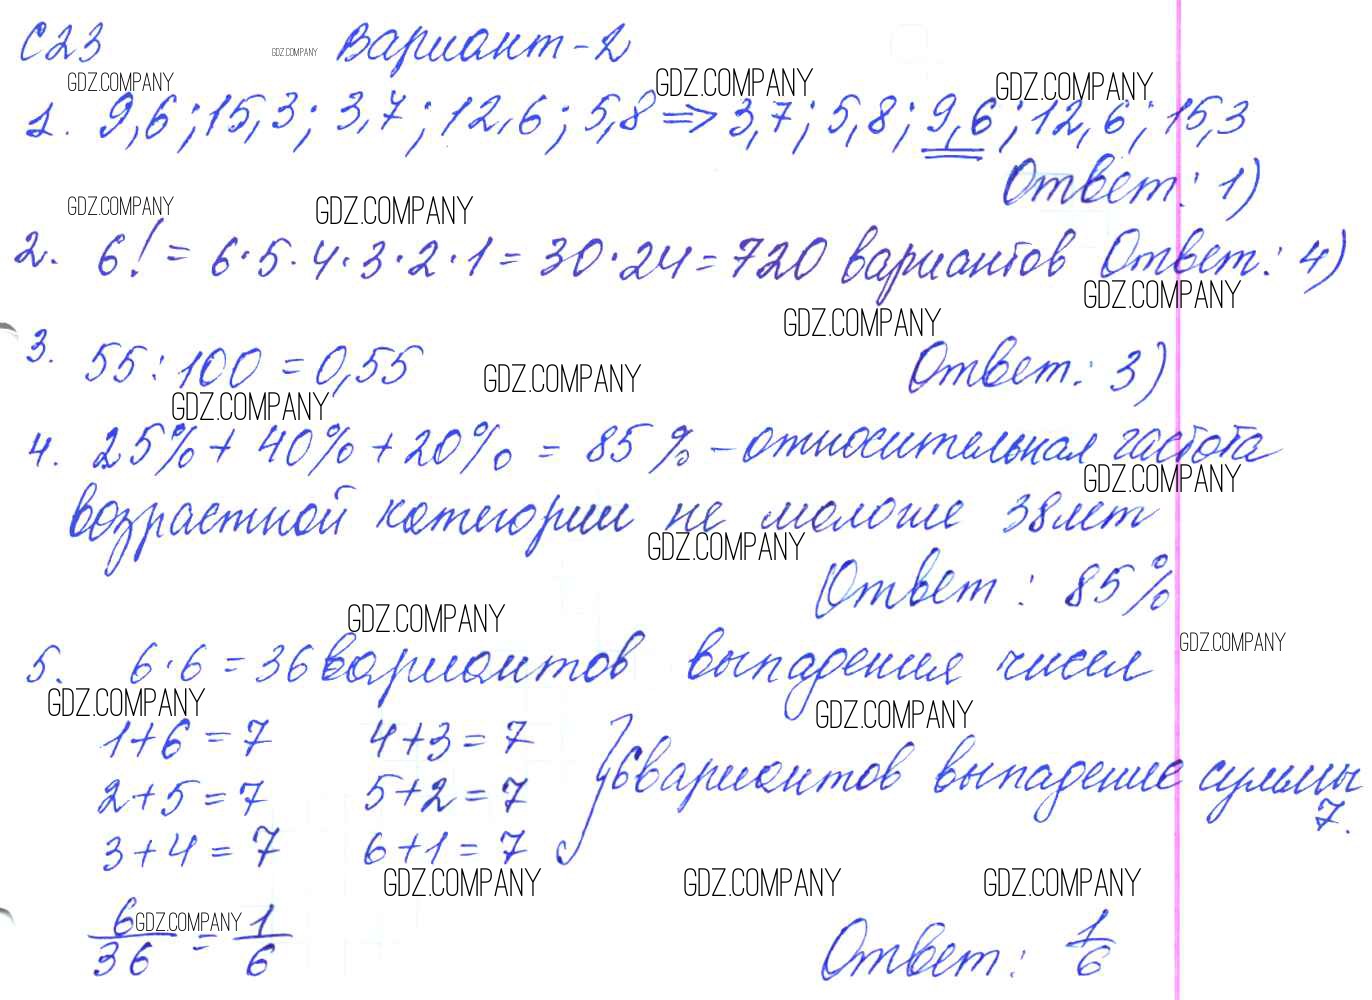 С23 GDZ.COMPANY Вариант-2
GDZ.COMPANY GDZ.COMPANY GDZ.COMPANY
1. 9,6; 15,3; 3,7; 12,6; 5,8 => 3,7; 5,8; 9,6; 12,6; 15,3
Ответ: 1)
GDZ.COMPANY GDZ.COMPANY
2. 6! = 6·5·4·3·2·1 = 30·24 = 720 вариантов Ответ: 4)
GDZ.COMPANY GDZ.COMPANY
3. 55:100 = 0,55 GDZ.COMPANY Ответ: 3)
GDZ.COMPANY
4. 25% + 40% + 20% = 85% - относительная частота
GDZ.COMPANY
возрастной категории не моложе 38 лет
GDZ.COMPANY
Ответ: 85%
GDZ.COMPANY GDZ.COMPANY
5. 6·6 = 36 вариантов выпадения чисел
GDZ.COMPANY GDZ.COMPANY
1+6=7 4+3=7
2+5=7 5+2=7 6 вариантов выпадение суммы
7.
3+4=7 6+1=7
GDZ.COMPANY GDZ.COMPANY GDZ.COMPANY
6/36 = 1/6 GDZ.COMPANY Ответ: 1/6